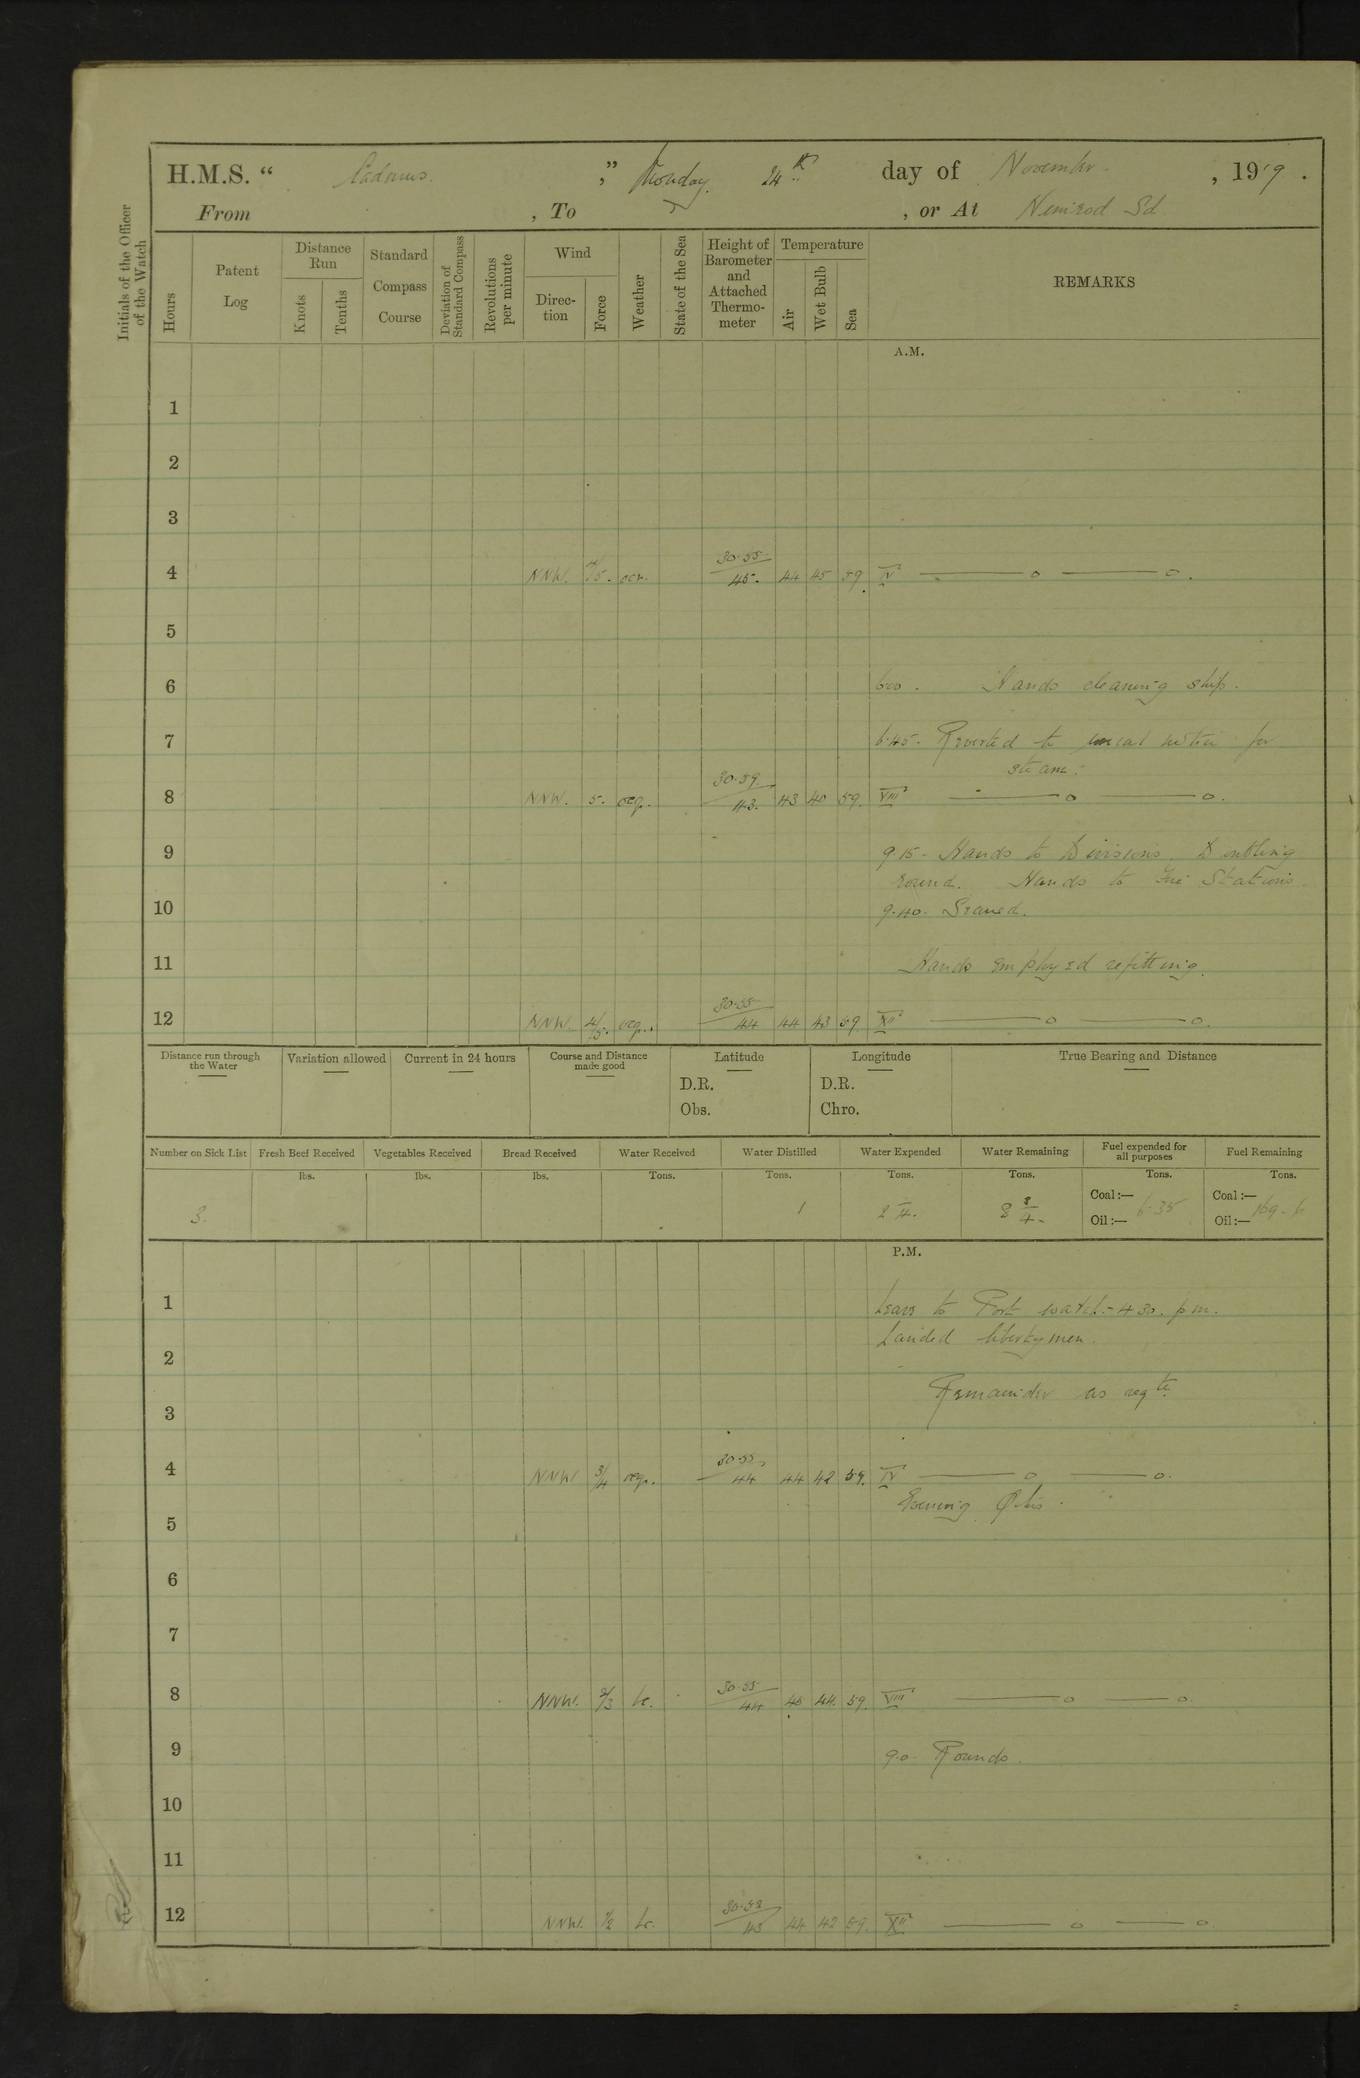 H.M.S. “ Cadmus. ” Monday 24th day of November, 1919.
From , To , or At Nimrod Sd
Initials of the Officer of the Watch
Hours
Patent Log
Distance Run
Knots
Tenths
Standard Compass Course
Deviation of Standard Compass
Revolutions per minute
Wind
Direc-tion
Force
Weather
State of the Sea
Height of Barometer and Attached Thermo-meter
Temperature
Air
Wet Bulb
Sea
REMARKS
A.M.
1
2
3
4 NNW. 4/5. ocr. 30.55 45. 44 45 59. IV —— o —— o.
5
6 600. Hands cleaning ship.
7 6.45. Reverted to usual notice for
steam.
8 NNW. 5. ocq. 30.59. 43. 43 40 59. VIII —— o —— o.
9 9.15. Hands to Divisions. Doubling
round. Hands to Fire Stations.
10 9.40. Secured.
11 Hands employed refitting.
12 NNW 4/5. ocq. 30.55 44 44 43 59 XII —— o —— o.
Distance run through the Water
Variation allowed
Current in 24 hours
Course and Distance made good
Latitude
D.R.
Obs.
Longitude
D.R.
Chro.
True Bearing and Distance
Number on Sick List
Fresh Beef Received
Vegetables Received
Bread Received
Water Received
Water Distilled
Water Expended
Water Remaining
Fuel expended for all purposes
Fuel Remaining
lbs. lbs. lbs. Tons. Tons. Tons. Tons. Tons. Tons.
3. 1
Coal:— 6.35 Coal:— 169.6
Oil:— Oil:—
P.M.
1 Leave to Port watch - 430. pm.
Landed libertymen.
2
3 Remainder as reqte
4 NNW 3/4 ocq. 30.55 44 44 42 59. IV —— o —— o.
Evening Qtrs.
5
6
7
8 NNW. 2/3 bc. 30.55 44 45 44. 59. VIII —— o —— o.
9 9.0. Rounds.
10
11
12 NNW. 1/2 bc. 30.52 43 44 42 59. XII —— o —— o.